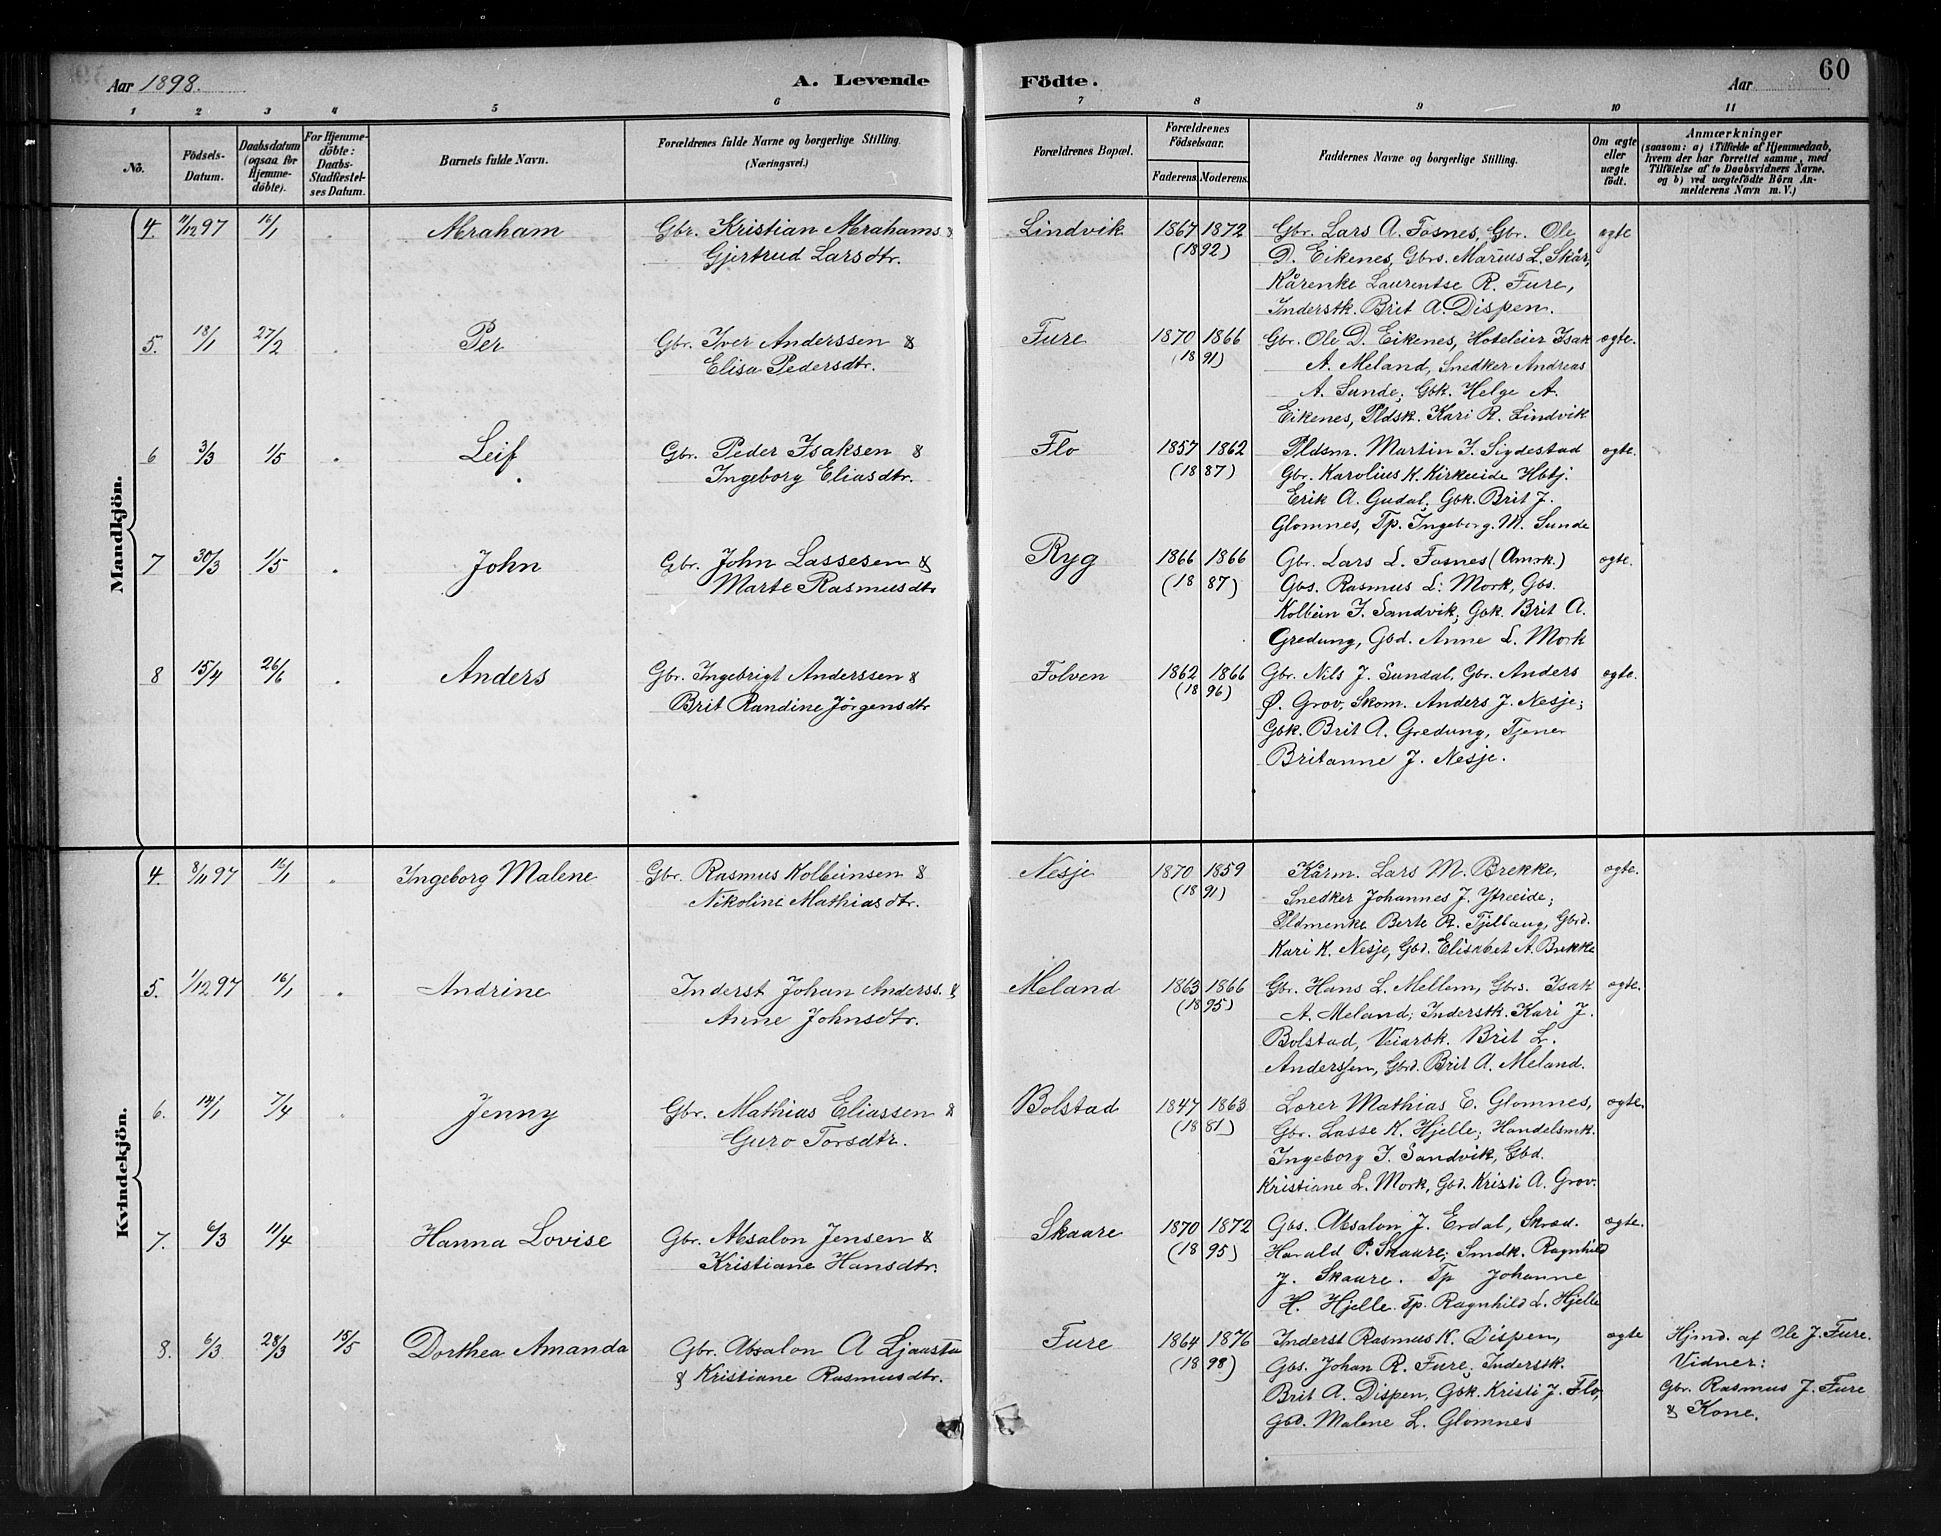 Aar 1898. A. Levende Födte. Aar 60
1 2 3 4 5 6 7 8 9 10 11
No. Födsels-Datum. Daabsdatum (ogsaa for Hjemmedöbte). For Hjemmedöbte: Daabs-Stadfæstelses Datum. Barnets fulde Navn. Forældrenes fulde Navne og borgerlige Stilling. (Næringsvei.) Forældrenes Bopæl. Forældrenes Födselsaar. Faderens. Moderens. Faddernes Navne og borgerlige Stilling. Om ægte eller uægte födt. Anmærkninger
(saasom: a) i Tilfælde af Hjemmedaab, hvem der har forrettet samme, med Tilföielse af to Daabsvidners Navne, og b) ved uægtefödte Börn Anmelderens Navn m. V.)
Mandkjön.
4. 11/12 97 16/1 Abraham Gbr. Kristian Abrahams. & Lindvik 1867 1872 Gbr. Lars A. Fosnes, Gbr. Ole ægte
Gjertrud Larsdtr. (1892) D. Eikenes, Gbrs. Marius L. Skår,
Kårenke Laurentse R. Fure,
Inderstk. Brit A. Dispen.
5. 18/1 27/2 Per Gbr. Iver Anderssen & Fure 1870 1866 Gbr. Ole D. Eikenes, Hoteleier Isak ægte.
Elisa Pedersdtr. (1891) A. Meland, Snedker Andreas
A. Sunde; Gbk. Helge A.
Eikenes, Pldsk. Kari R. Lindvik
6 3/3 1/5 Leif Gbr. Peder Isaksen & Flo 1857 1862 Pldsm. Martin J. Sigdestad ægte.
Ingeborg Eliasdtr. (1887) Gbr. Karolius K. Kirkeide Hbtj.
Erik A. Gudal; Gbk. Brit J.
Glomnes, Tp. Ingeborg. M. Sunde
7 30/3 1/5 John Gbr. John Lassesen & Ryg 1866 1866 Gbr. Lars L. Fosnes (Amrk.) ægte.
Marte Rasmusdtr (1887) Gbs. Rasmus L. Mork, Gbs.
Kolbein J. Sandvik; Gbk. Brit A.
Gredung, Gbd. Anne L. Mork
8 15/4 26/6 Anders Gbr. Ingebrigt Anderssen & Folven 1862 1866 Gbr. Nils J. Sundal, Gbr. Anders ægte.
Brit Randine Jörgensdtr (1896) Ø. Grov, Skom. Anders J. Nesje;
Gbk. Brit A. Gredung, Tjener
Britanne J. Nesje.
Kvindekjön.
4. 8/11 97 16/1 Ingeborg Malene Gbr. Rasmus Kolbeinsen & Nesje 1870 1859 Kårm. Lars M. Brekke, ægte.
Nikoline Mathiasdtr. (1891) Snedker Johannes J. Ytreeide;
Pldmenke Berte R. Tjelbaug, Gbrd.
Kari K. Nesje, Gbd. Elisabet A. Brekke
5. 1/12 97 16/1 Andrine Inderst Johan Anderss. & Meland 1863 1866 Gbr. Hans L. Mellem, Gbrs. Isak ægte.
Anne Johnsdtr. (1895) A. Meland; Inderstk. Kari J.
Bolstad, Veiarbk. Brit L.
Anderssen, Gbrd. Brit A. Meland.
6. 14/1 7/4 Jenny Gbr. Mathias Eliassen & Bolstad 1847 1863 Lærer Mathias E. Glomnes, ægte.
Guro Torsdtr. (1881) Gbr. Lasse K. Hjelle; Handelsmk.
Ingeborg J. Sandvik, Gbd.
Kristiane L. Mork, Gbd. Kristi A. Grov.
7. 6/3 11/4 Hanna Lovise Gbr. Absalon Jensen & Skaare 1870 1872 Gbs. Absalon J. Erdal, Skræd. ægte.
Kristiane Hansdtr. (1895) Harald P. Skaare; Smdk. Ragnhild
J. Skaare. Tp Johanne
H. Hjelle. Tp. Ragnhild L. Hjelle
8. 6/3 28/3 15/5 Dorthea Amanda Gbr. Absalon A Fure 1864 1876 Inderst Rasmus K. Dispen, ægte Hjmd. af Ole J. Fure.
& Kristiane Rasmusdtr. (1898) Gbs. Johan R. Fure; Inderstk. Vidner:
Brit A. Dispen, Gbk. Kristi J. Flo, Gbr. Rasmus J. Fure
Gbd. Malene L. Glomnes & Kone.